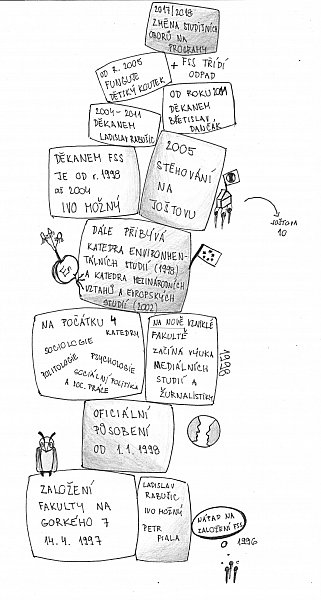 2017/2018
ZMĚNA STUDIJNÍCH
OBORŮ NA
PROGRAMY
OD R. 2005
FUNGUJE
DĚTSKÝ KOUTEK
+ FSS TŘÍDÍ
ODPAD
OD ROKU 2011
DĚKANEM
BŘETISLAV
DANČÁK
2004-2011
DĚKANEM
LADISLAV RABUŠIC
2005
STĚHOVÁNÍ
NA
JOŠTOVU
DĚKANEM FSS
JE OD r. 1998
až 2004
IVO MOŽNÝ
JOŠTOVA
10
DÁLE PŘIBÝVÁ
KATEDRA ENVIRONMEN-
TÁLNÍCH STUDIÍ (1998)
A KATEDRA MEZINÁRODNÍCH
VZTAHŮ A EVROPSKÝCH
STUDIÍ (2002)
NA POČÁTKU 4
KATEDRY
SOCIOLOGIE
POLITOLOGIE
PSYCHOLOGIE
SOCIÁLNÍ POLITIKA
A SOC. PRÁCE
NA NOVĚ VZNIKLÉ
FAKULTĚ
ZAČÍNÁ VÝUKA
MEDIÁLNÍCH
STUDIÍ A
ŽURNALISTIKY
1998
OFICIÁLNÍ
PŮSOBENÍ
OD 1.1.1998
ZALOŽENÍ
FAKULTY NA
GORKÉHO 7
14.4.1997
LADISLAV
RABUŠIC
IVO MOŽNÝ
PETR
FIALA
NÁPAD NA
ZALOŽENÍ FSS
1996